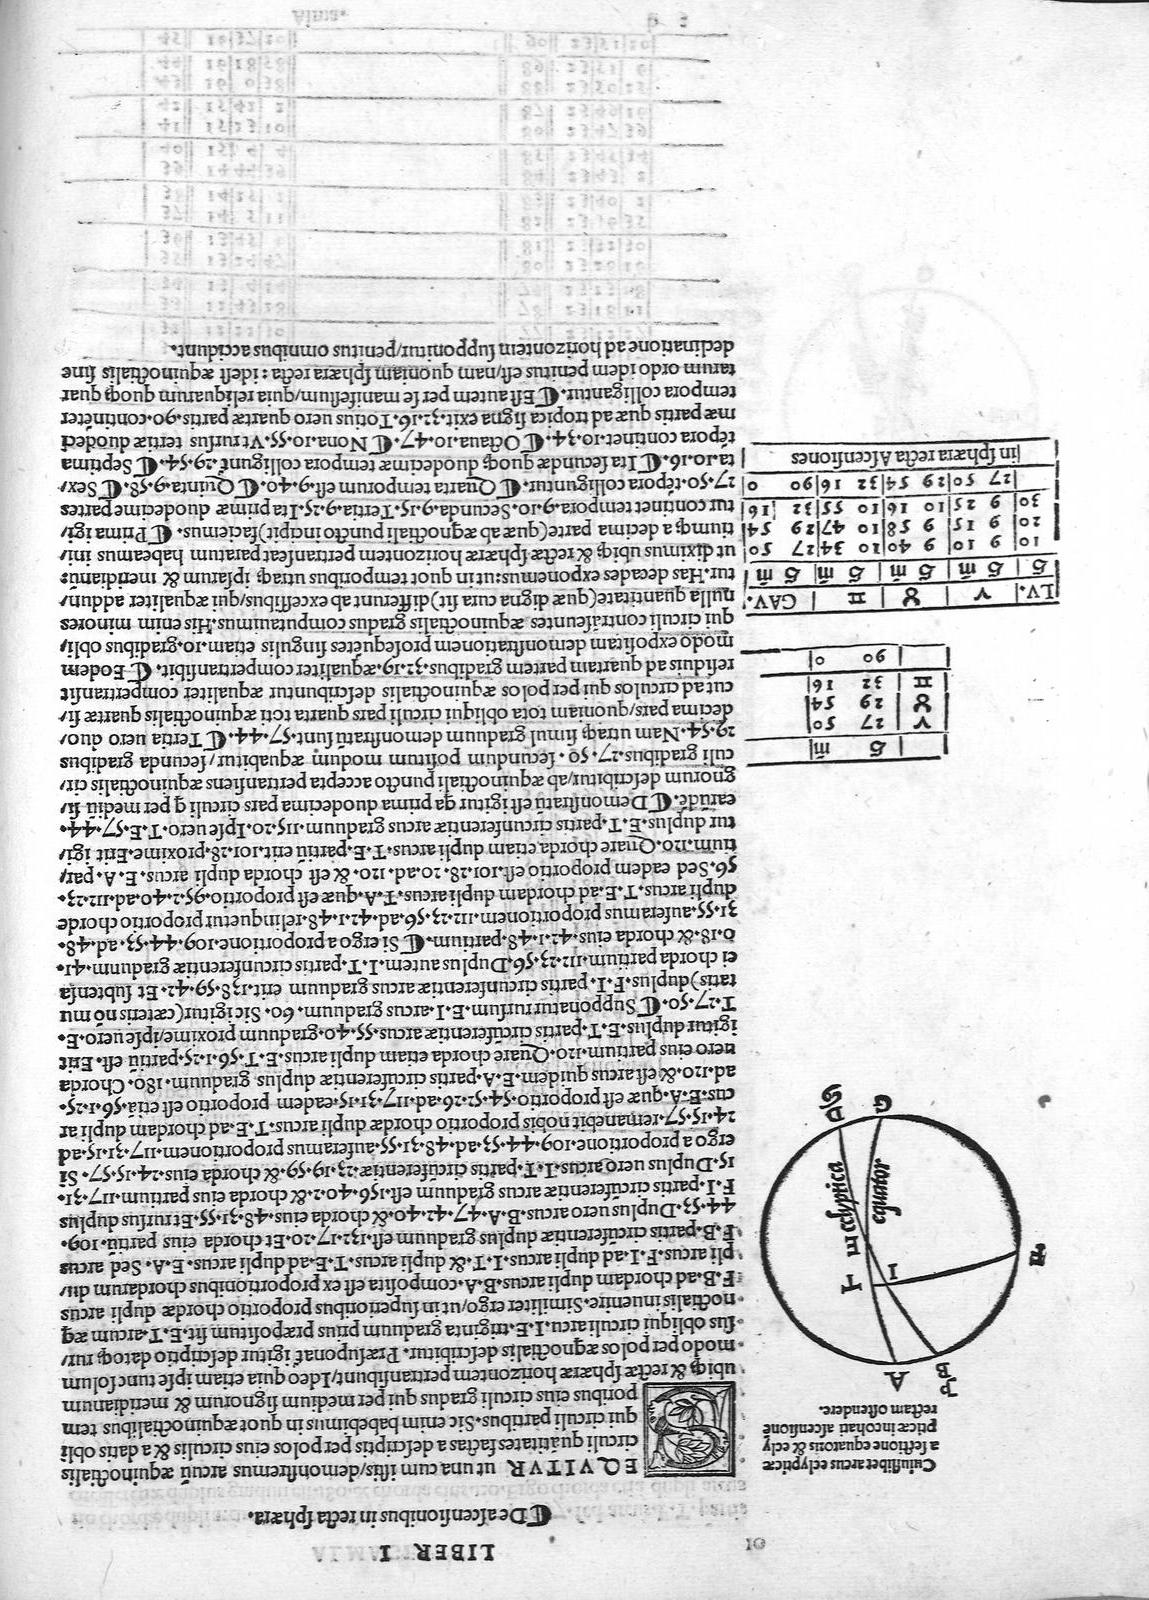 10
LIBER I
De aſcenſionibus in recta ſphæra.
SEQVITVR ut una cum iſtis/demonſtremus arcuū æquinoctialis
circuli quātitates factas a deſcriptis per polos eius circulis & a datis obli
qui circuli partibus. Sic enim habebimus in quot æquinoctialibus tem
poribus eius circuli gradus qui per medium ſignorum & meridianum
ubiq; & rectæ ſphæræ horizontem pertranſibunt/Ideo quia etiam ipſe tunc ſolum
modo per polos æqnoctialis deſcribitur. Præſuponat̄ igitur deſcriptio datoq; rur/
ſus obliqui circuli arcu. I.E. triginta graduum prius præpoſitum ſit. E.T. arcum æq
noctialis inuenire. Similiter ergo/ut in ſuperioribus proportio chordæ dupli arcus
F.B. ad chordam dupli arcus. B.A. compoſita eſt ex proportionibus chordarum du
pli arcus. F.I. ad dupli arcus. I.T. & dupli arcus. T.E. ad dupli arcus. E.A. Sed arcus
F.B. partis circūferentiæ duplus graduum eſt. 132.17.20. Et chorda eius partiū. 109.
44.53. Duplus uero arcus. B.A. 47.42.40. & chorda eius. 48.31.55. Et rurſus duplus
F.I. partis circūferentiæ arcus graduum eſt. 156.40.2. & chorda eius partium. 117.31.
15. Duplus uero arcus. I.T. partis circūferentiæ. 23.19.59. & chorda eius. 24.15.57. Si
ergo a proportione. 109.44.53. ad. 48.31.55. auferamus proportionem. 117.31.15. ad
24.15.57. remanebit nobis proportio chordæ dupli arcus. T.E. ad chordam dupli ar
cus. E.A. quæ eſt proportio. 54.52.26. ad. 117.31.15. eadem proportio eſt etiā. 56.1.25.
ad. 120. & eſt arcus quidem. E.A. partis circūferentiæ duplus graduum. 180. Chorda
uero eius partium. 120. Quare chorda etiam dupli arcus. E.T. 56.1.25. partiū eſt. Erit
igitur duplus. E.T. partis circūferentiæ arcus. 55.40. graduum proxime/ipſe uero. E.
T. 27.50. Supponatur rurſum. E.I. arcus graduum. 60. Sic igitur (cæteris nō mu
tatis) duplus. F.I. partis circunferentiæ arcus graduum erit. 138.59.42. Et ſubtenſa
ei chorda partium. 112.23.56. Duplus autem. I.T. partis circunferentiæ graduum. 41.
0.18. & chorda eius. 42.1.48. partium. Si ergo a proportione. 109.44.53. ad. 48.
31.55. auferamus proportionem. 112.23.56. ad. 42.1.48. relinquetur proportio chorde
dupli arcus. T.E. ad chordam dupli arcus. T.A. quæ eſt proportio. 95.2.40. ad. 112.23.
56. Sed eadem proportio eſt. 101.28.20. ad. 120. & eſt chorda dupli arcus. E.A. par/
tium. 120. Quare chorda etiam dupli arcus. T.E. partiū erit. 101.28. proxime. Erit igi/
tur duplus. E.T. partis circunferentiæ arcus graduum. 115.20. Ipſe uero. T.E. 57.44.
earūdē. Demonſtratū eſt igitur qa prima duodecima pars circuli q per mediū ſi/
gnorum deſcribitur/ab æquinoctiali puncto accepta pertranſiens æquinoctialis cir/
culi gradibus. 27.50. ſecundum poſitum modum æquabitur/ſecunda gradibus
29.54. Nam utraq; ſimul graduum demonſtratū ſunt. 57.44. Tertia uero duo/
decima pars/quoniam tota obliqui circuli pars quarta toti æquinoctialis quartæ ſi/
cut ad circulos qui per polos æquinoctialis deſcribuntur æqualiter compertranſit
reſiduis ad quartam partem gradibus. 32.19. æqualiter compertranſibit. Eodem
modo expoſitam demonſtrationem proſequētes ſingulis etiam. 10. gradibus obli/
qui circuli contrāfeuntes æquinoctialis gradus computauimus. His enim minores
nulla quantitate (quæ digna cura ſit) differunt ab exceſſibus/qui æqualiter addun/
tur. Has decades exponemus: ut in quot temporibus utraq; ipſarum & meridianū:
ut diximus ubiq; & rectæ ſphæræ horizontem pertranſeat/paratum habeamus ini/
tiumq; a decima parte (quæ ab æqnoctiali puncto incipit) faciemus. Prima igi/
tur continet tempora. 9.10. Secunda. 9.15. Tertia. 9.25. Ita primæ duodecime partes
27.50. tēpora colliguntur. Quarta temporum eſt. 9.40. Quinta. 9.58. Sex/
ta. 10.16. Ita ſecundæ quoq; duodecimæ tempora colligunt̄. 29.54. Septima
tēpora continet. 10.34. Octaua. 10.47. Nona. 10.55. Vt rurſus tertiæ duodeci
mæ partis quæ ad tropica ſigna exit. 32.16. Totius uero quartæ partis. 90. continēter
tempora colligantur. Eſt autem per ſe manifeſtum/quia reliquarum quoq; quar
tarum ordo idem penitus eſt/nam quoniam ſphæra recta: ideſt æquinoctialis ſine
declinatione ad horizontem ſupponitur/penitus omnibus accidunt.
Cuiuſlibet arcus eclypticæ
a ſectione equatoris & ecly
pticæ incohati aſcenſionē
rectam oſtendere.
A
B
T I
ecliptica
equator
G
G̃ m̃
♈ 27 50
♉ 29 54
♊ 32 16
90 0
LV. ♈ ♉ ♊ GAV.
G̃ G̃ m̃ G̃ m̃ G̃ m̃ G̃ m̃
10 9 10 9 40 10 34 27 50
20 9 15 9 58 10 47 29 54
30 9 25 10 16 10 55 32 16
27 50 29 54 32 16 90 0
in ſphæra recta Aſcenſiones